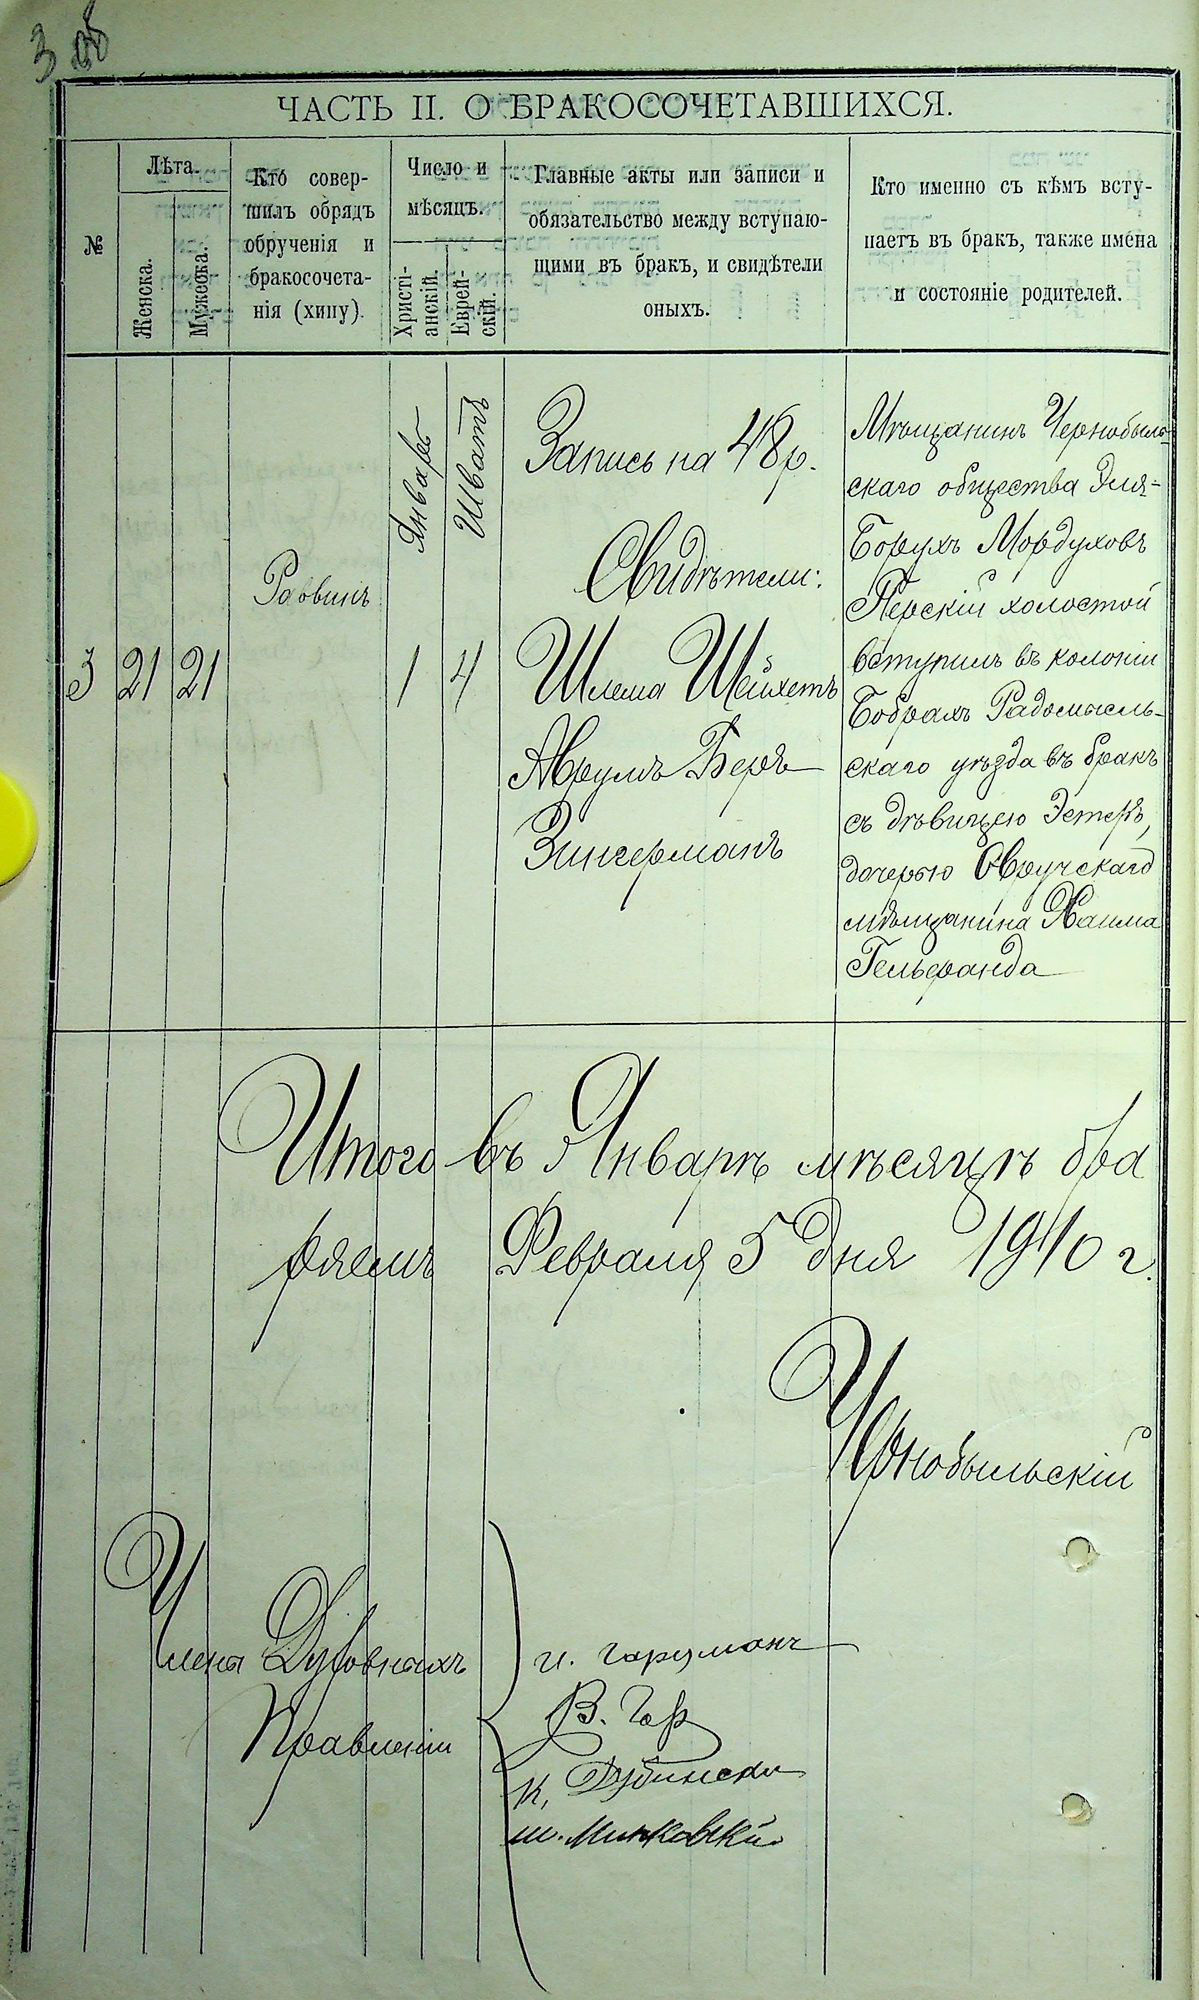 3
ЧАСТЬ II. О БРАКОСОЧЕТАВШИХСЯ.
№
Лѣта.
Женска.
Мужеска.
Кто совер-
шилъ обрядъ
обрученія и
бракосочета-
нія (хипу).
Число и
мѣсяцъ.
Христі-
анскій.
Еврей-
скій.
Главные акты или записи и
обязательство между вступаю-
щими въ бракъ, и свидѣтели
оныхъ.
Кто именно съ кѣмъ всту-
паетъ въ бракъ, также имена
и состояніе родителей.
3
21
21
Раввинъ
Январь
1
Шватъ
4
Запись на 48 р.
Свидѣтели:
Шлема Шейхетъ
Аврумъ Беръ
Зингерманъ
Мѣщанинъ Чернобыль-
скаго общества Эля-
Борухъ Мордуховъ
Перскій холостой
вступилъ въ колоніи
Бобрахъ Радомысль-
скаго уѣзда въ бракъ
съ дѣвицею Эстеръ,
дочерью Овручскаго
мѣщанина Хаима
Гельфанда
Итого въ Январѣ мѣсяцѣ два
Февраля 5 дня 1910 г.
Чернобыльскій
Члены Духовныхъ
Правленій
В. Гор
К. Дубински
ш. Минковскій